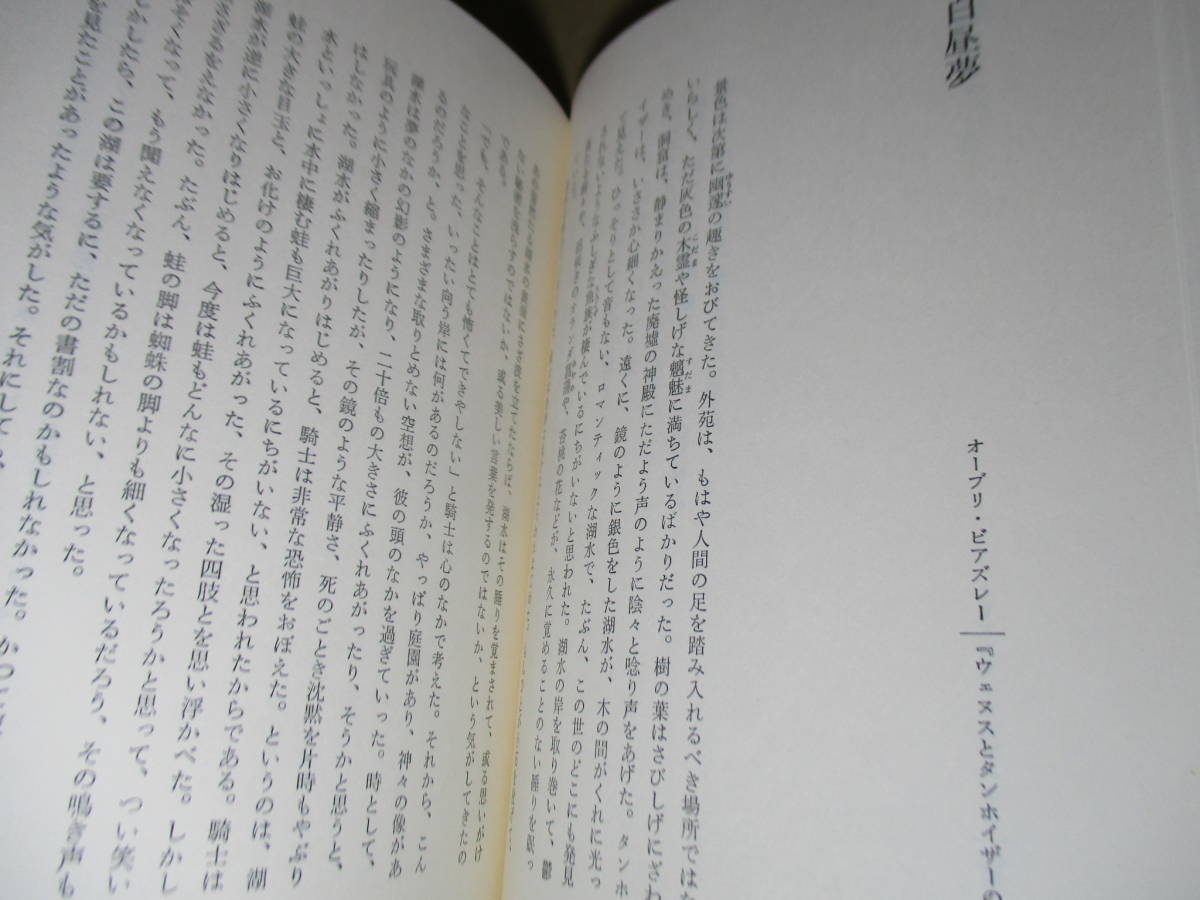 白昼夢
オーブリ・ビアズレー『ウェヌスとタンホイザーの
景色は次第に幽邃の趣きをおびてきた。外苑は、もはや人間の足を踏み入れるべき場所ではな
いらしく、ただ灰色の木霊や怪しげな魑魅に満ちているばかりだった。樹の葉はさびしげにざわ
めき、洞窟は、静まりかえった廃墟の神殿にただよう声のように陰々と唸り声をあげた。タンホ
イザーは、いささか心細くなった。遠くに、鏡のように銀色をした湖水が、木の間がくれに光っ
て見えた。ひっそりとして音もない、ロマンティックな湖水で、たぶん、この世のどこにも発見
されないようなふしぎな魚族が棲んでいるにちがいないと思われた。湖水の岸を取り巻いて、鬱
や、苔桃の花などが、永久に覚めることのない睡りを眠っ
湖水の表面にさざ波を立てたならば、湖水はその睡りを覚まされて、或る思いがけ
ない秘密を洩らすのではないか、或る美しい言葉を発するのではないか、という気がしてきたの
である。
「でも、そんなことはとても怖くてできやしない」と騎士は心のなかで考えた。それから、こん
なことを思った、いったい向う岸には何があるのだろうか、やっぱり庭園があり、神々の像があ
るのだろうか、と。さまざまな取りとめない空想が、彼の頭のなかを過ぎていった。時として、
湖水は夢のなかの幻影のようになり、二十倍もの大きさにふくれあがったり、そうかと思うと、
玩具のように小さく縮まったりしたが、その鏡のような平静さ、死のごとき沈黙を片時もやぶり
はしなかった。湖水がふくれあがりはじめると、騎士は非常な恐怖をおぼえた。というのは、湖
水といっしょに水中に棲む蛙も巨大になっているにちがいない、と思われたからである。騎士は
蛙の大きな目玉と、お化けのようにふくれあがった、その湿った四肢とを思い浮かべた。しかし
湖水が逆に小さくなりはじめると、今度は蛙もどんなに小さくなったろうかと思って、つい笑い
ざるをえなかった。たぶん、蛙の脚は蜘蛛の脚よりも細くなっているだろう、その鳴き声も
くなって、もう聞えなくなっているかもしれない、と思った。
かしたら、この湖は要するに、ただの書割なのかもしれなかった。かつて
を見たことがあったような気がした。それにしても、